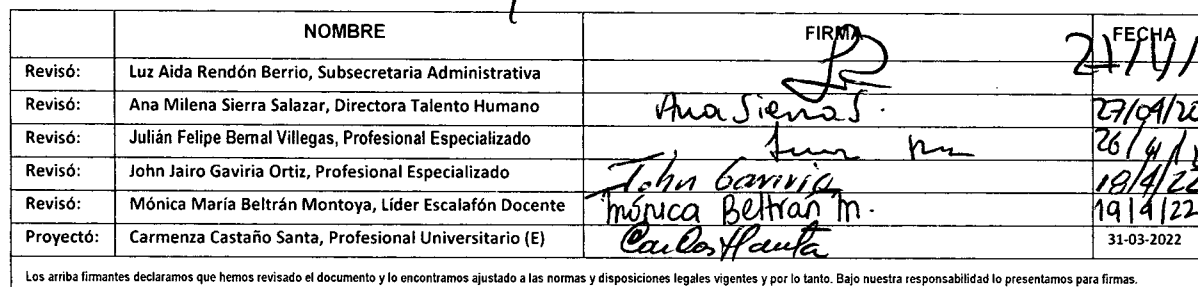 NOMBRE FIRMA FECHA
Revisó: Luz Aida Rendón Berrio, Subsecretaria Administrativa
Revisó: Ana Milena Sierra Salazar, Directora Talento Humano Ana Sierra S. 27/04/20
Revisó: Julián Felipe Bernal Villegas, Profesional Especializado
Revisó: John Jairo Gaviria Ortiz, Profesional Especializado John Gaviria 18/4/22
Revisó: Mónica María Beltrán Montoya, Líder Escalafón Docente Mónica Beltrán M. 19/4/22
Proyectó: Carmenza Castaño Santa, Profesional Universitario (E) 31-03-2022
Los arriba firmantes declaramos que hemos revisado el documento y lo encontramos ajustado a las normas y disposiciones legales vigentes y por lo tanto. Bajo nuestra responsabilidad lo presentamos para firmas.